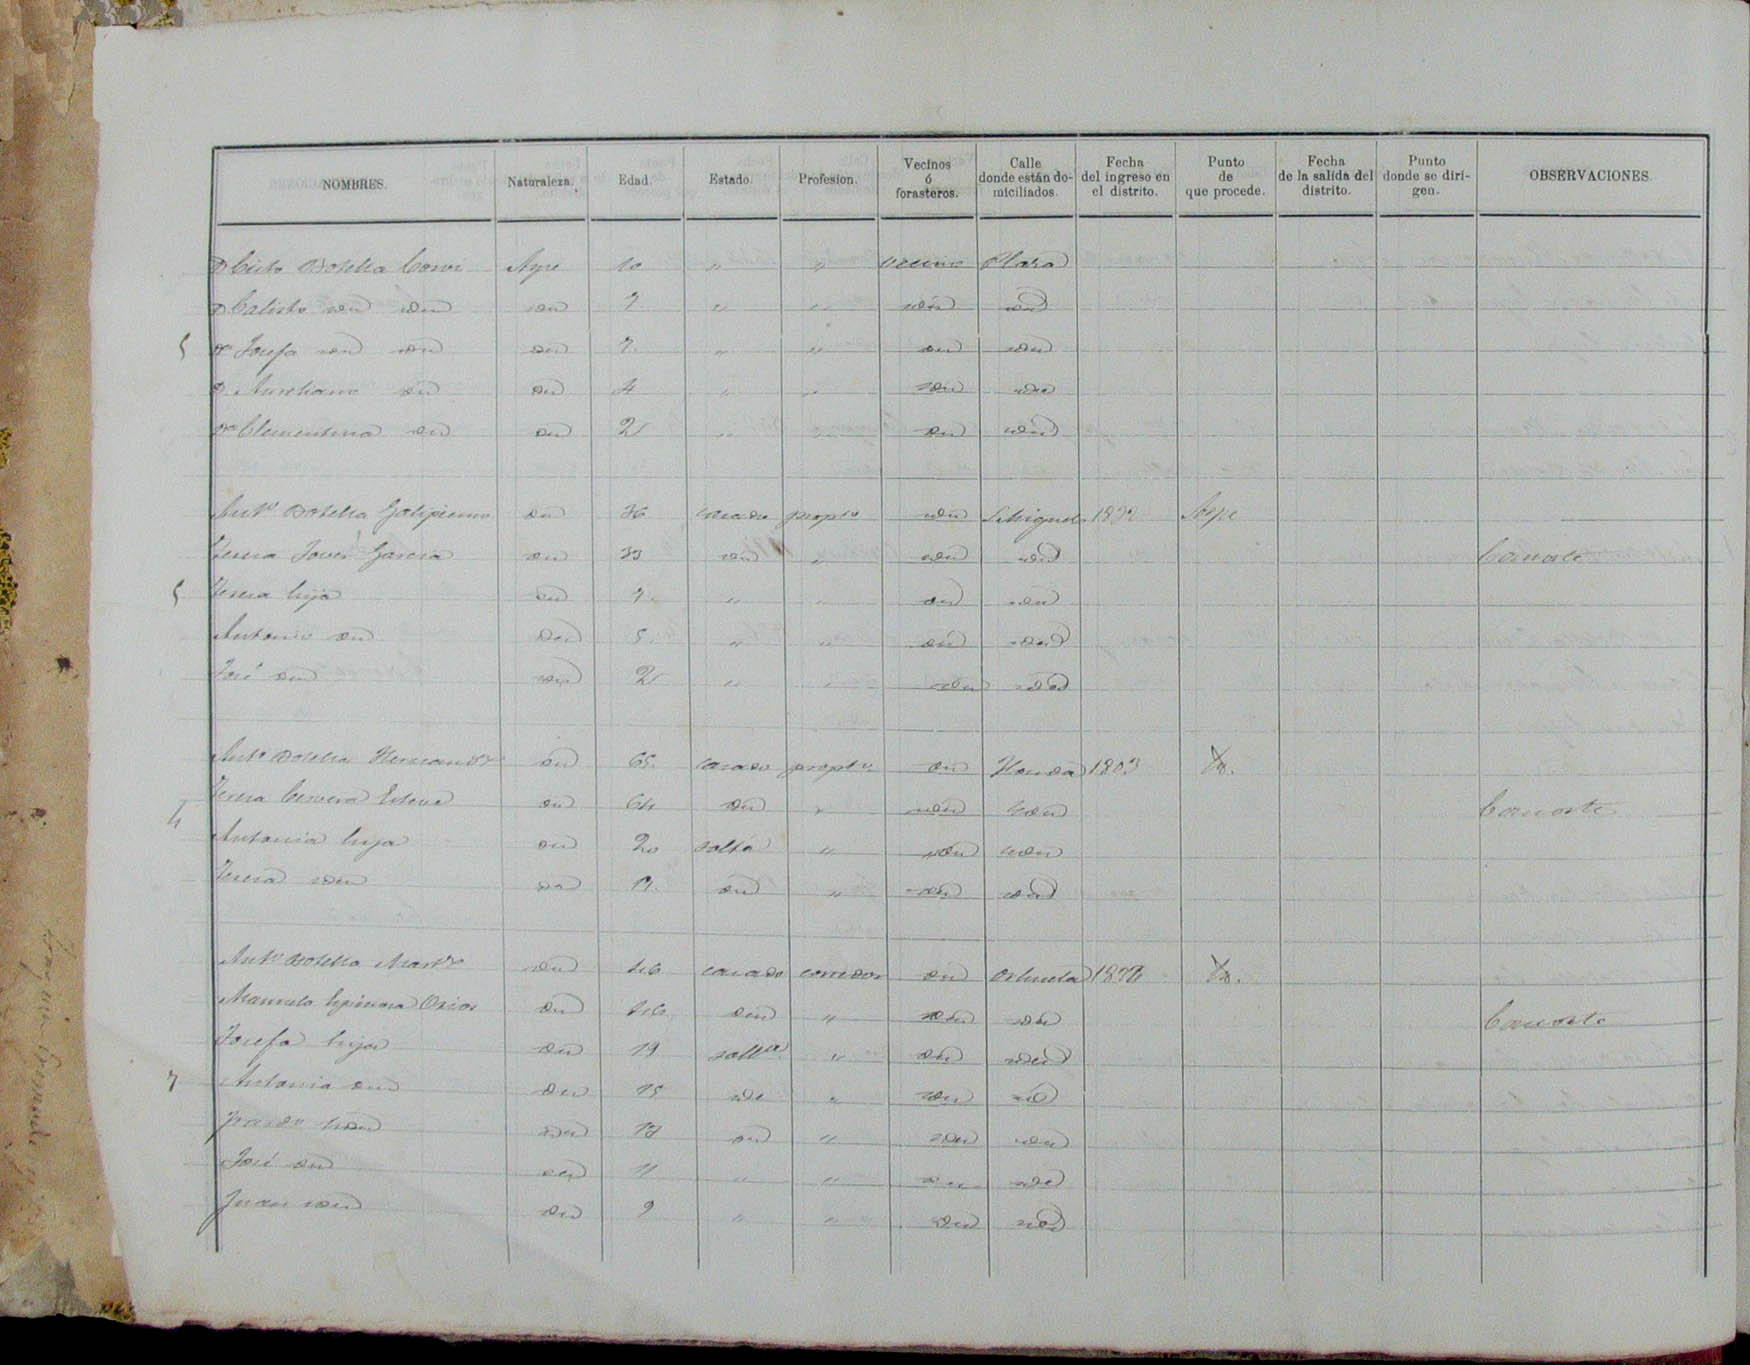 NOMBRES. Naturaleza. Edad. Estado. Profesion. Vecinos ó forasteros. Calle donde están domiciliados. Fecha del ingreso en el distrito. Punto de que procede. Fecha de la salida del distrito. Punto donde se dirigen. OBSERVACIONES.
Botella 10 " " vecino Plaza
D Calisto idem idem idem 9 " " idem idem
5 Da Josefa idem idem idem 7 " " idem idem
D. Aureliano idem idem 4 " " idem idem
Da Clementina idem idem 2 " " idem idem
Anto Botella idem 36 casado propio idem S. Miguel Aspe
Teresa Jover Garcia idem 33 idem " idem idem Consorte
5 Teresa hija idem 7 " " idem idem
Antonio idem idem 5 " " idem idem
José idem idem 2 " " idem idem
Anto Botella Hernandez idem 65 casado propio idem Honda 1803 Yd.
Teresa Cervera Esteve idem 64 idem " idem idem Consorte
4 Antonia hija idem 20 solta " idem idem
Teresa idem idem 17 idem " idem idem
Anto Botella Martz idem 46 casado corredor idem Orihuela Yd.
Manuela Espinosa idem 46 idem " idem idem Consorte
Josefa hija idem 19 solta " idem idem
7 Antonia idem idem 15 idem " idem idem
idem idem idem " idem idem
José idem idem 11 " " idem idem
Juan idem idem 9 " " idem idem